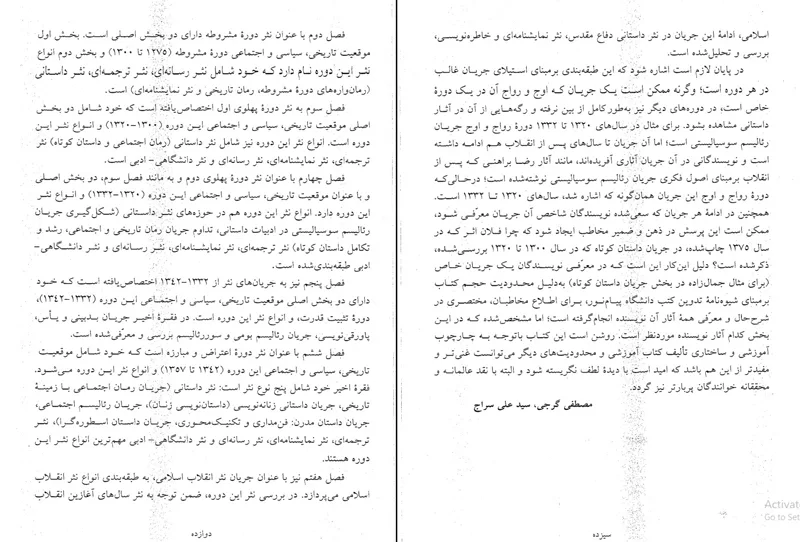 فصل دوم با عنوان نثر دورهٔ مشروطه دارای دو بخش اصلی است. بخش اول
موقعیت تاریخی، سیاسی و اجتماعی دورهٔ مشروطه (۱۲۷۵ تا ۱۳۰۰) و بخش دوم انواع
نثر این دوره نام دارد که خود شامل نثر رسانه‌ای، نثر ترجمه‌ای، نثر داستانی
(رمان‌واره‌های دورهٔ مشروطه، رمان تاریخی و نثر نمایشنامه‌ای) است.
فصل سوم به نثر دورهٔ پهلوی اول اختصاص‌یافته است که خود شامل دو بخش
اصلی موقعیت تاریخی، سیاسی و اجتماعی این دوره (۱۳۰۰-۱۳۲۰) و انواع نثر این
دوره است. انواع نثر این دوره نیز شامل نثر داستانی (رمان اجتماعی و داستان کوتاه) نثر
ترجمه‌ای، نثر نمایشنامه‌ای، نثر رسانه‌ای و نثر دانشگاهی- ادبی است.
فصل چهارم با عنوان نثر دورهٔ پهلوی دوم و به مانند فصل سوم، دو بخش اصلی
و با عنوان موقعیت تاریخی، سیاسی و اجتماعی این دوره (۱۳۲۰-۱۳۳۲) و انواع نثر
این دوره دارد. انواع نثر این دوره هم در حوزه‌های نثر داستانی (شکل‌گیری جریان
رئالیسم سوسیالیستی در ادبیات داستانی، تداوم جریان رمان تاریخی و اجتماعی، رشد و
تکامل داستان کوتاه) نثر ترجمه‌ای، نثر نمایشنامه‌ای، نثر رسانه‌ای و نثر دانشگاهی-
ادبی طبقه‌بندی‌شده است.
فصل پنجم نیز به جریان‌های نثر از ۱۳۳۲-۱۳۴۲ اختصاص‌یافته است که خود
دارای دو بخش اصلی موقعیت تاریخی، سیاسی و اجتماعی این دوره (۱۳۳۲-۱۳۴۲)،
دورهٔ تثبیت قدرت، و انواع نثر این دوره است. در فقرهٔ اخیر جریان بدبینی و یأس،
پاورقی‌نویسی، جریان رئالیسم بومی و سوررئالیسم بررسی و معرّفی‌شده است.
فصل ششم با عنوان نثر دورهٔ اعتراض و مبارزه است که خود شامل موقعیت
تاریخی، سیاسی و اجتماعی این دوره (۱۳۴۲ تا ۱۳۵۷) و انواع نثر این دوره می‌شود.
فقرهٔ اخیر خود شامل پنج نوع نثر است: نثر داستانی (جریان رمان اجتماعی با زمینهٔ
تاریخی، جریان داستانی زنانه‌نویسی (داستان‌نویسی زنان)، جریان رئالیسم اجتماعی،
جریان داستان مدرن: فن‌مداری و تکنیک‌محوری، جریان داستان اسطوره‌گرا)، نثر
ترجمه‌ای، نثر نمایشنامه‌ای، نثر رسانه‌ای و نثر دانشگاهی- ادبی مهم‌ترین انواع نثر این
دوره هستند.
فصل هفتم نیز با عنوان جریان نثر انقلاب اسلامی، به طبقه‌بندی انواع نثر انقلاب
اسلامی می‌پردازد. در بررسی نثر این دوره، ضمن توجه به نثر سال‌های آغازین انقلاب
دوازده
اسلامی، ادامهٔ این جریان در نثر داستانی دفاع مقدس، نثر نمایشنامه‌ای و خاطره‌نویسی،
بررسی و تحلیل‌شده است.
در پایان لازم است اشاره شود که این طبقه‌بندی برمبنای استیلای جریان غالب
در هر دوره است؛ وگرنه ممکن است یک جریان که اوج و رواج آن در یک دورهٔ
خاص است، در دوره‌های دیگر نیز به‌طورکامل از بین نرفته و رگه‌هایی از آن در آثار
داستانی مشاهده بشود. برای مثال در سال‌های ۱۳۲۰ تا ۱۳۳۲ دورهٔ رواج و اوج جریان
رئالیسم سوسیالیستی است؛ اما آن جریان تا سال‌های پس از انقلاب هم ادامه داشته
است و نویسندگانی در آن جریان آثاری آفریده‌اند، مانند آثار رضا براهنی که پس از
انقلاب برمبنای اصول فکری جریان رئالیسم سوسیالیستی نوشته‌شده است؛ درحالی‌که
دورهٔ رواج و اوج این جریان همان‌گونه که اشاره شد، سال‌های ۱۳۲۰ تا ۱۳۳۲ است.
همچنین در ادامهٔ هر جریان که سعی‌شده نویسندگان شاخص آن جریان معرّفی شود،
ممکن است این پرسش در ذهن و ضمیر مخاطب ایجاد شود که چرا فلان اثر که در
سال ۱۳۷۵ چاپ‌شده، در جریان داستان کوتاه که در سال ۱۳۰۰ تا ۱۳۲۰ بررسی‌شده،
ذکرشده است؟ دلیل این‌کار این است که در معرّفی نویسندگان یک جریان خاص
(برای مثال جمال‌زاده در بخش جریان داستان کوتاه) به‌دلیل محدودیت حجم کتاب
برمبنای شیوه‌نامهٔ تدوین کتب دانشگاه پیام‌نور، برای اطلاع مخاطبان، مختصری در
شرح‌حال و معرّفی همهٔ آثار آن نویسنده انجام‌گرفته است؛ اما مشخص‌شده که در این
بخش کدام آثار نویسنده موردنظر است. روشن است این کتاب باتوجه به چارچوب
آموزشی و ساختاری تألیف کتاب آموزشی و محدودیت‌های دیگر می‌توانست غنی‌تر و
مفیدتر از این هم باشد که امید است با دیدهٔ لطف نگریسته شود و البته با نقد عالمانه و
محققانه خوانندگان پربارتر نیز گردد.
مصطفی گرجی، سید علی سراج
سیزده
Activate
Go to Set